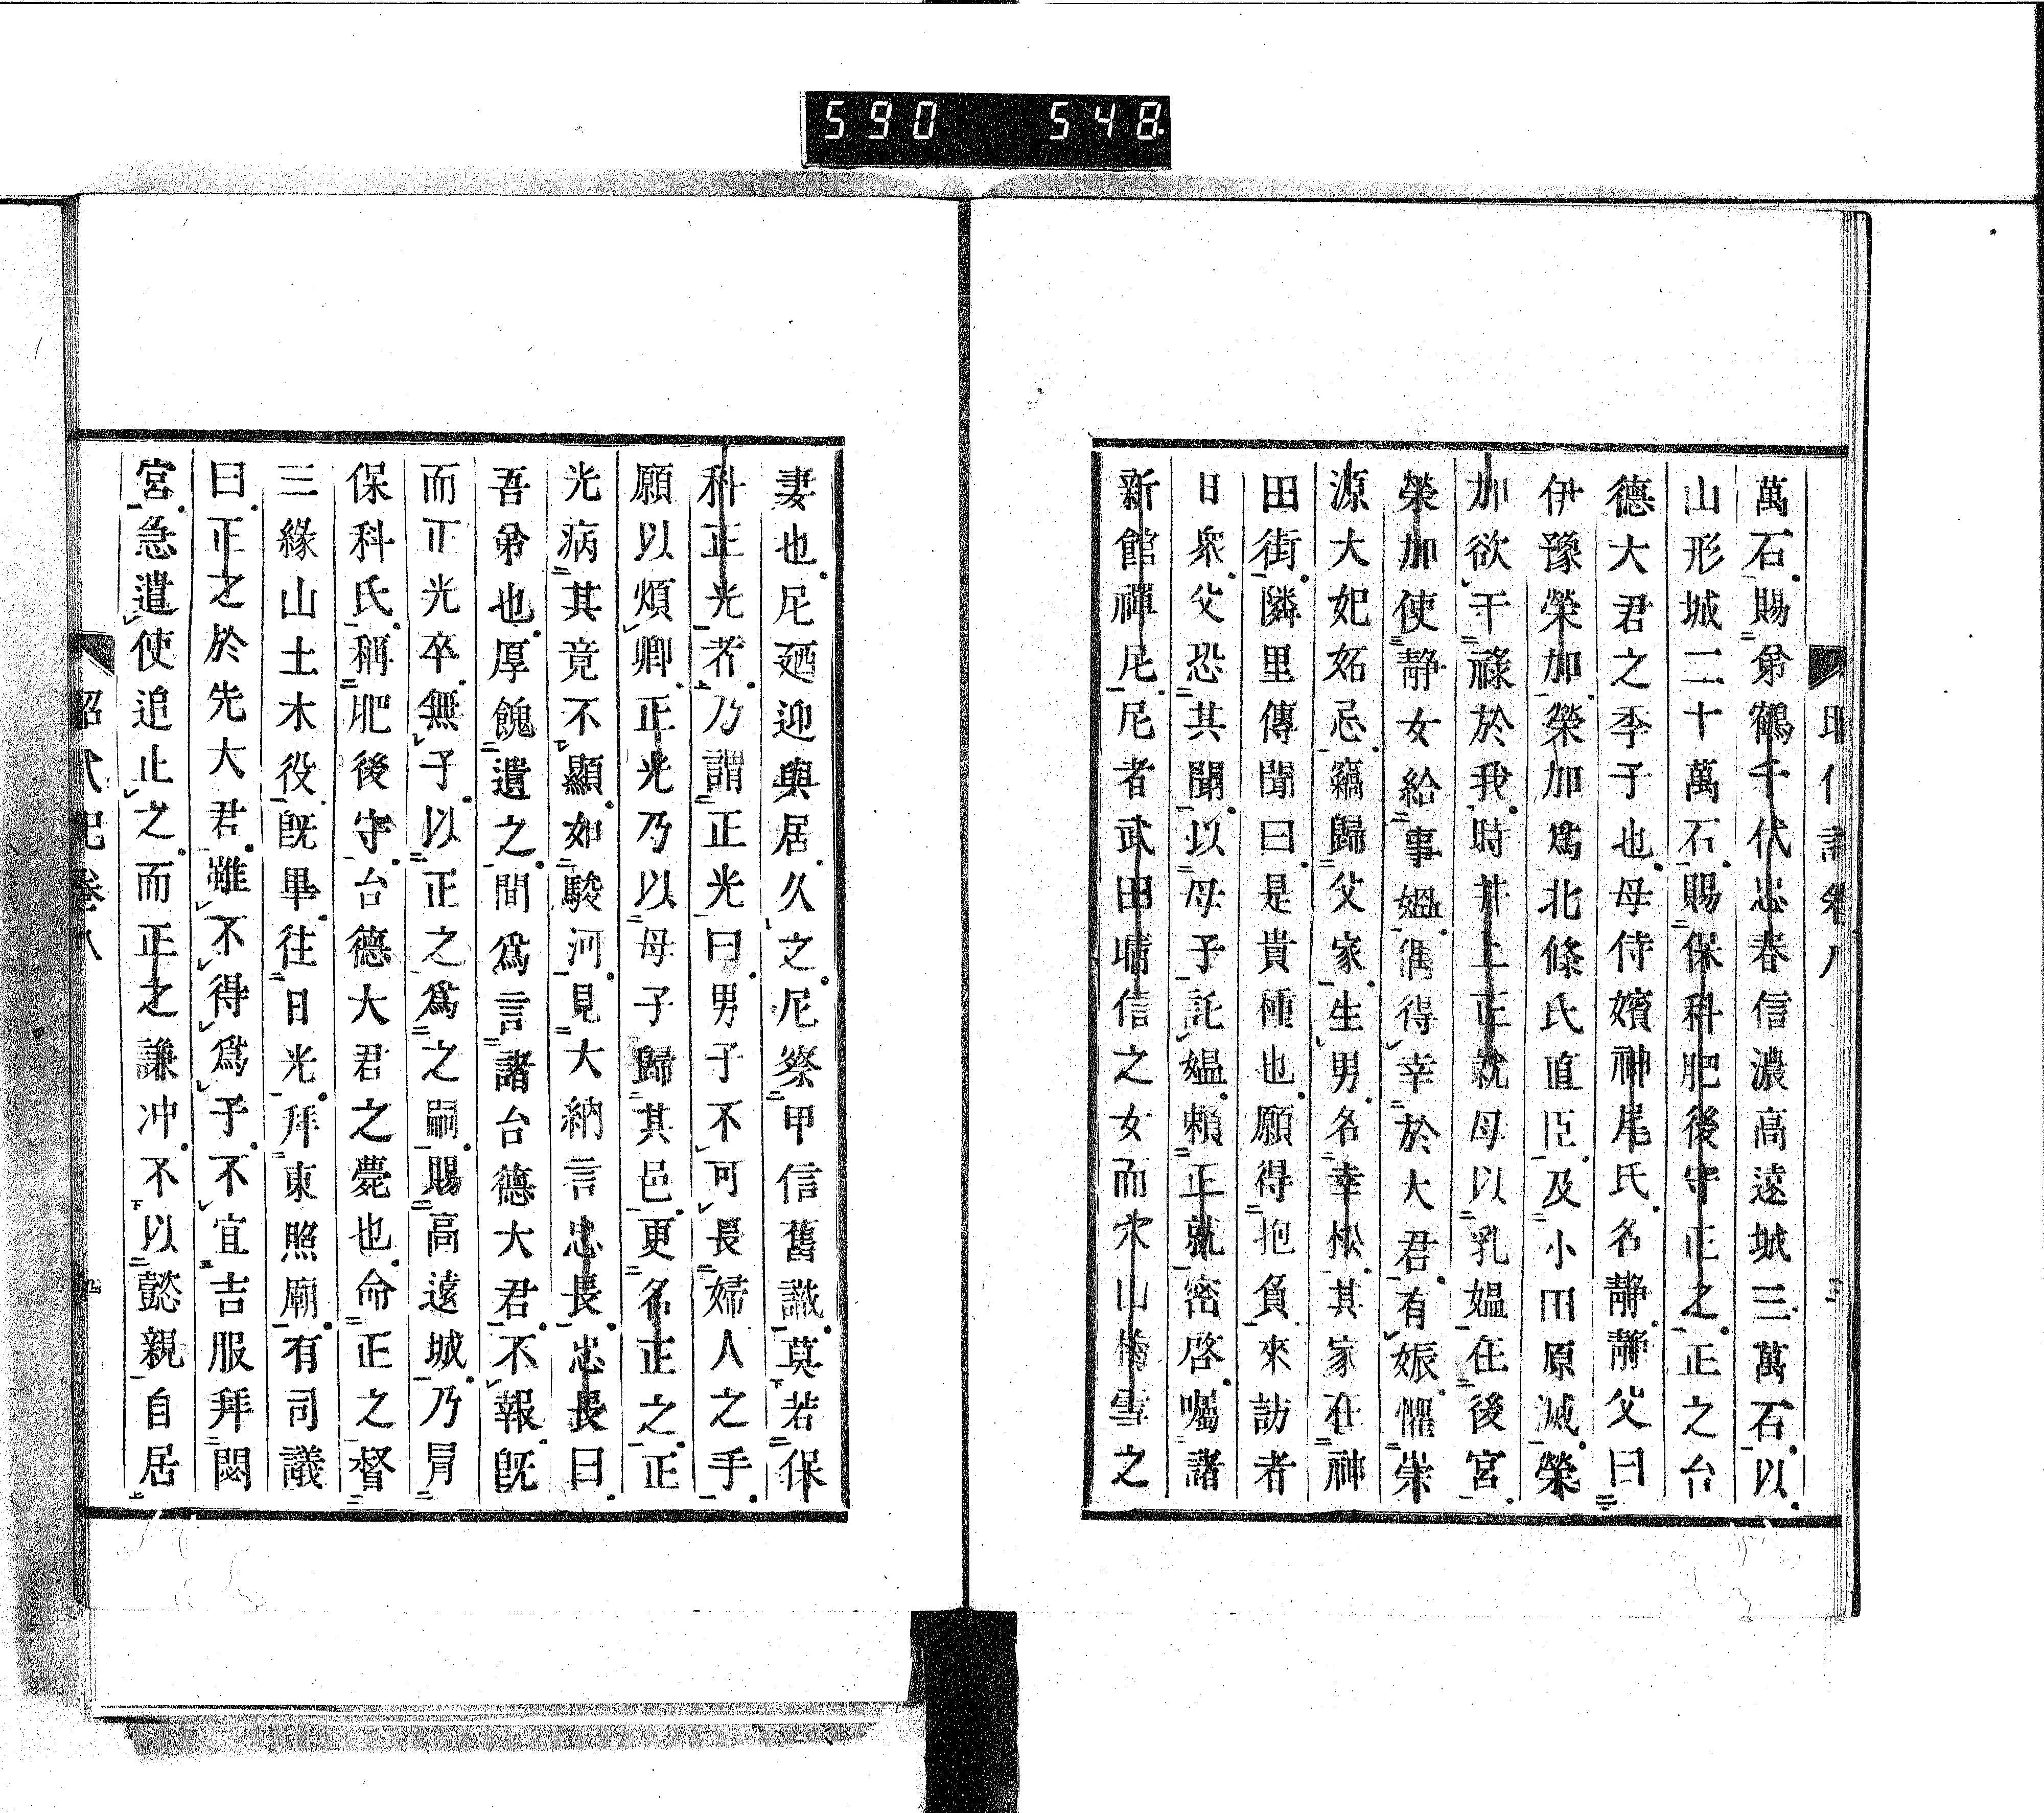 590 548
萬石賜弟鶴千代忠春信濃高遠城三萬石以
山形城二十萬石賜保科肥後守正之正之台
德大君之季子也母侍嬪神尾氏名靜靜父曰
伊豫榮加榮加爲北條氏直臣及小田原滅榮
加欲干祿於我時井上正就母以乳媼在後宮
榮加使靜女給事媼偶得幸於大君有娠懼崇
源大妃妬忌竊歸父家生男名幸松其家在神
田街隣里傳聞曰是貴種也願得抱負來訪者
日衆父恐其聞以母子託媼賴正就密啓囑諸
新館禪尼尼者武田晴信之女而穴山梅雪之
妻也尼廼迎與居久之尼察甲信舊識莫若保
科正光者乃謂正光曰男子不可長婦人之手
願以煩卿正光乃以母子歸其邑更名正之正
光病其竟不顯如駿河見大納言忠長忠長曰
吾弟也厚餽遺之間爲言諸台德大君不報既
而正光卒無子以正之爲之嗣賜高遠城乃冐
保科氏稱肥後守台德大君之薨也命正之督
三緣山土木役既畢往日光拜東照廟有司議
曰正之於先大君雖不得爲子不宜吉服拜閟
宮急遣使追止之而正之謙冲不以懿親自居
昭代記卷八